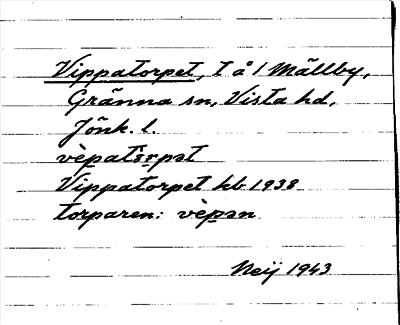 Vippatorpet, t å 1 Mällby,
Gränna sn, Vista hd,
Jönk. l.
vèpatɔrpət
Vippatorpet kb 1938
torparen: vèpən
Neij 1943